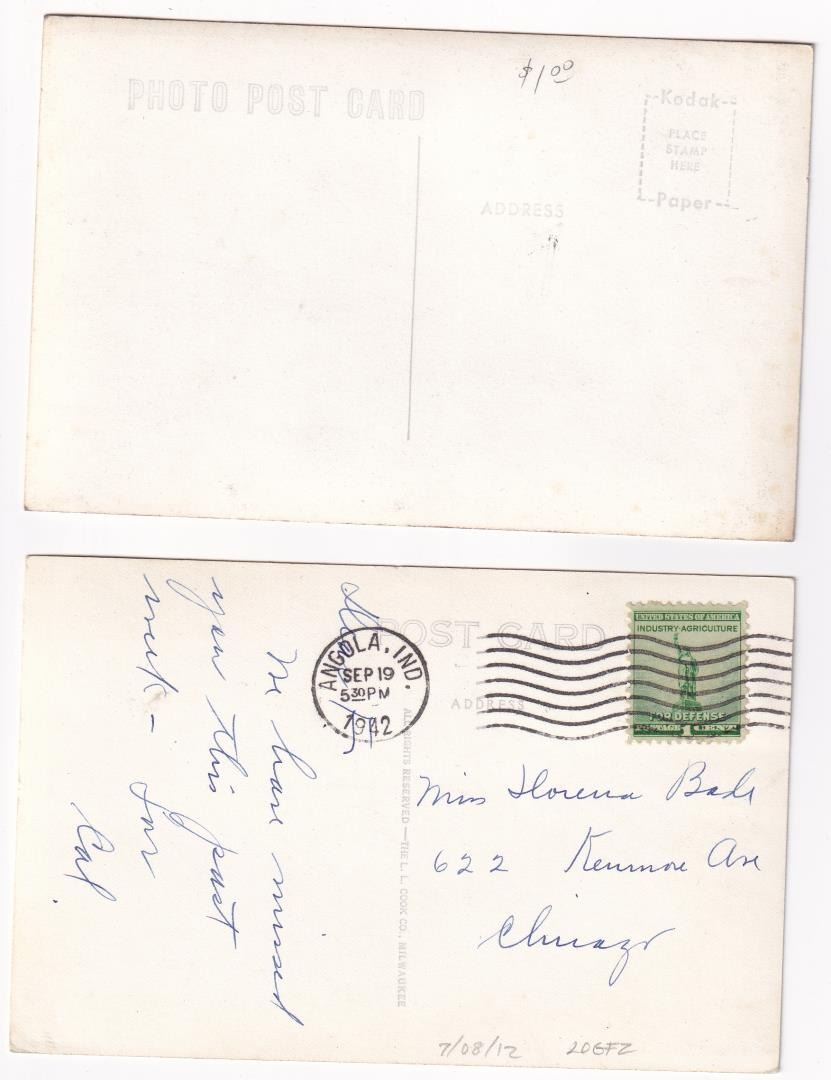 $1.00
PHOTO POST CARD
--Kodak--
PLACE
STAMP
HERE
--Paper--
ADDRESS
POST CARD
ADDRESS
ANGOLA, IND.
SEP 19
5 30 PM
1942
UNITED STATES OF AMERICA
INDUSTRY·AGRICULTURE
FOR DEFENSE
POSTAGE 1 CENT
ALL RIGHTS RESERVED—THE L. L. COOK CO., MILWAUKEE
We have missed
you this past
week –
Miss Florena Bade
622 Kenmore Ave
Chicago
7/08/12 20GFZ